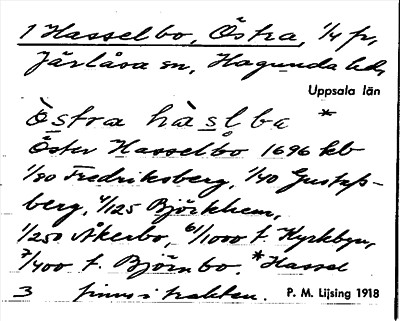 1 Hasselbo, Östra, 1/4 fr,
Järlåsa sn, Hagunda hd,
Uppsala län
östra hàslbe *
Öster Hasselbo 1696 kb
1/80 Fredriksberg, 1/40 Gustafs-
berg, 4/125 Björkhem,
1/250 Åkerbo, 61/1000 f. Kyrkbyn,
7/400 f. Björnbo. * Hassel
3 finns i trakten. P. M. Lijsing 1918